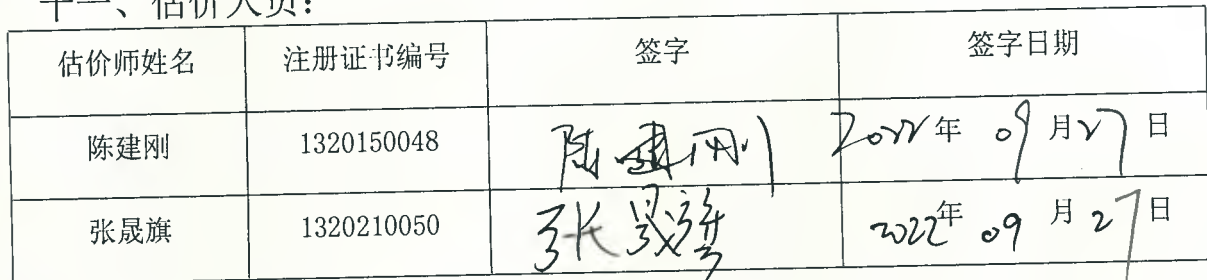 十一、估价人员：
估价师姓名 注册证书编号 签字 签字日期
陈建刚 1320150048 陈建刚 2022年 09月27日
张晟旗 1320210050 张晟旗 2022年 09月27日